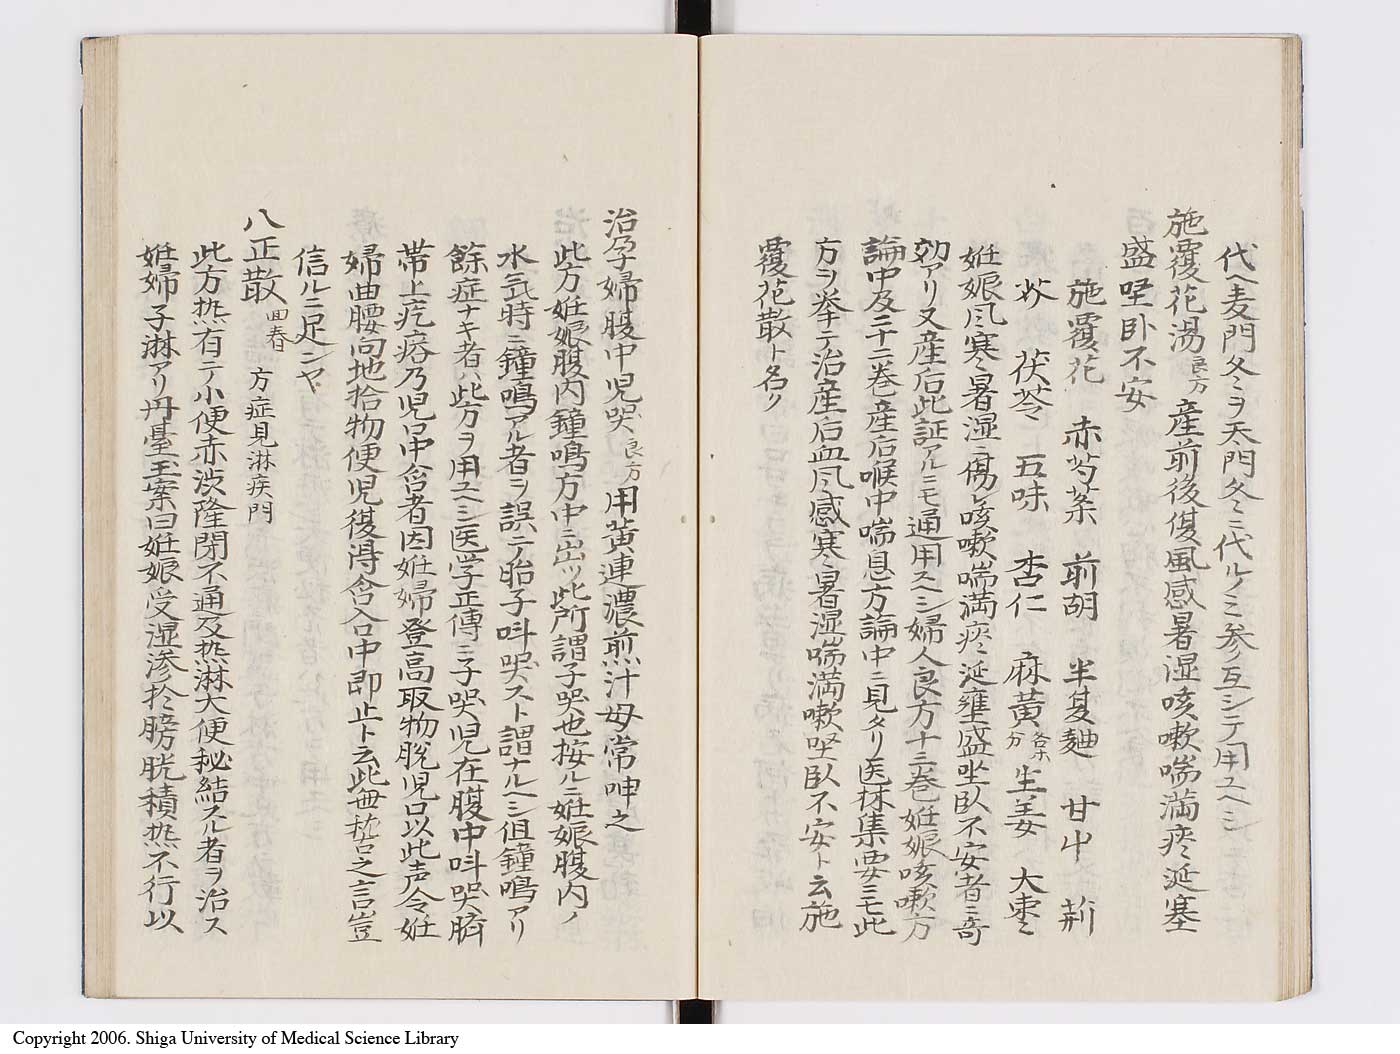 代ヘ麦門冬ヲ天門冬ニ代ルノミ参互シテ用ユヘシ
施覆花湯良方産前後傷風感暑湿咳嗽喘満痰涎塞
盛坐卧不安
施覆花 赤芍薬 前胡 半夏麯 甘屮 荊
芥 茯苓 五味 杏仁 麻黄各等分 生姜 大棗
妊娠风寒暑湿ニ傷レ咳嗽喘満痰涎壅盛坐臥不安者ニ奇
効アリ又産后此証アルニモ通用スヘシ婦人良方十三巻妊娠咳嗽方
論中及二十二巻産后喉中喘息方論中ニ見タリ医林集要ニモ此
方ヲ挙テ治産后血风感寒暑湿喘満嗽坐臥不安ト云施
覆花散ト名ク
治孕婦腹中児哭良方用黄連濃煎汁母常呻之
此方妊娠腹内鐘鳴方中ニ出ツ此所謂子哭也按ルニ妊娠腹内ノ
水气時ニ鐘鳴アル者ヲ誤テ胎子呌哭スト謂ナルヘシ但鐘鳴アリ
餘症ナキ者ハ此方ヲ用ユヘシ医学正傳ニ子哭児在腹中呌哭臍
帯上疙瘩乃児口中含者因妊婦登高取物脱児口以此声令妊
婦曲腰向地拾物便児復得含入口中即止ト云此無稽之言豈
信ルニ足ンヤ
八正散回春 方症見淋疾門
此方热有テ小便赤渋隆閉不通及热淋大便秘結スル者ヲ治ス
妊婦子淋アリ丹臺玉案曰妊娠受湿滲於膀胱積热不行以
Copyright 2006. Shiga University of Medical Science Library